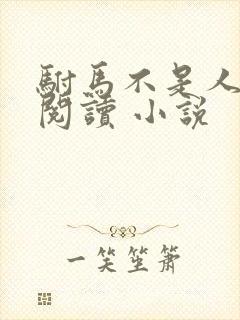 駙馬不是人
閱讀 小說
一笑笙簫